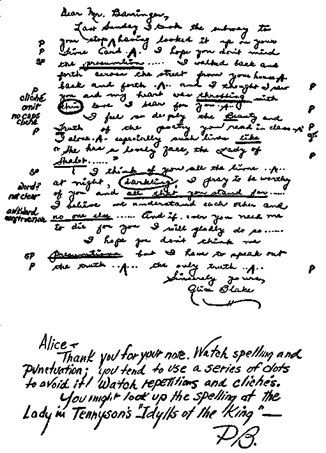 Dear Mr. Barringer,
Last Sunday I took the subway to
P your stop, having looked it up on your
P time card .A. I hope you don't mind P
sp the presumtion..... I walked back and
forth across the street from your house .A.
back and forth .A. and I thought I saw P
cliché you and my heart was throbbing with
omit this love I bear for you .A. P
no caps I feel so deeply the Beauty and
cliché Truth of the poetry you read in class .A. P
P I love .A. especially such lines like
"She has a lovely face, the Lady of
Shalot......"
sp I think of you all the time .A. P
word? at night, thanking, I pray to be worthy
not clear of you and all that you stand for.....
I believe we understand each other and
awkward construction no one else...... And if ever you need me
to die for you I will gladly do so.....
I hope you don't think me
sp presumtious but I have to speak out
P the truth .A. the only truth .A. P
Sincerely yours,
Alice Blake
Alice—
Thank you for your note. Watch spelling and
punctuation; you tend to use a series of dots
to avoid it! Watch repetitions and clichés.
You might look up the spelling of the
Lady in Tennyson's "Idylls of the King"—
P.B.